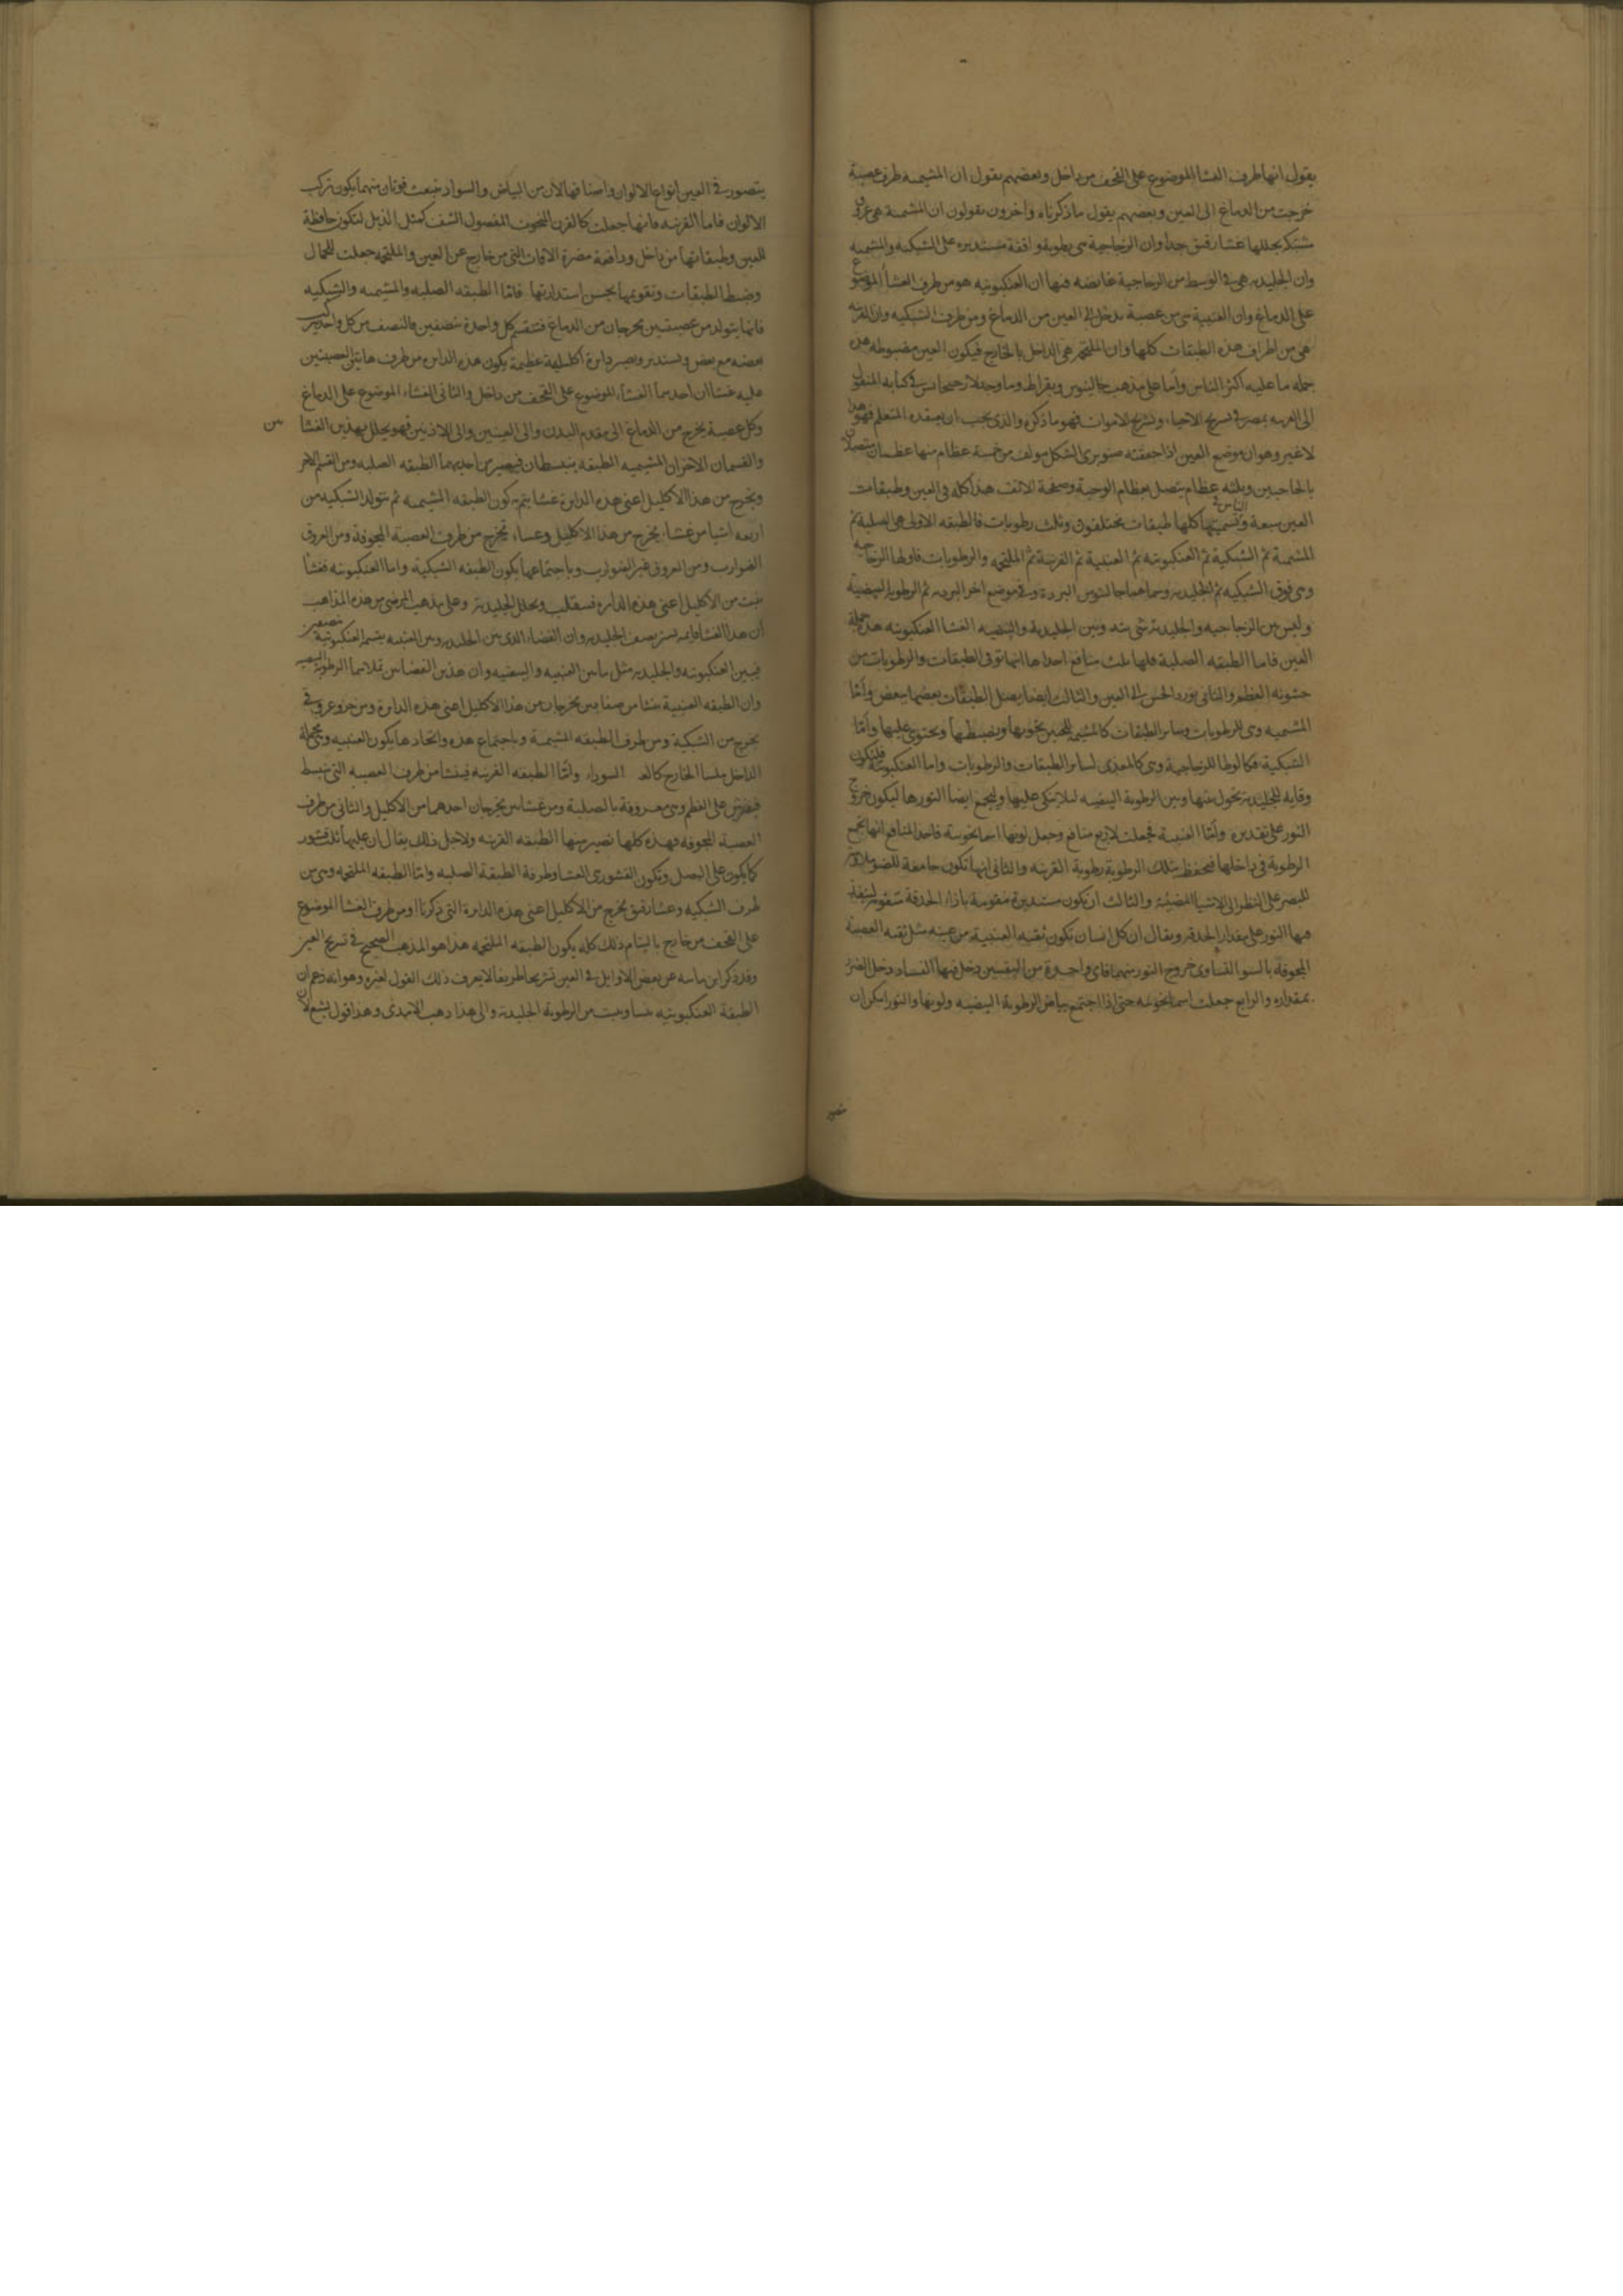 يقول انها طرف الغشا الموضوع على القحف من داخل وبعضهم يقول ان المشيمه طرف عصبة
خرجت من الدماغ الى العين وبعضهم يقول ما ذكرناه واخرون يقولون ان المشمة هى عروق
تشتبك يجللها غشا رقيق جدا وان الزجاجية هى رطوبة واقفة مستديره على الشبكيه والمشيمه
وان الجليديه هى فى الوسط من الزجاجية غايصه فيها ان العنكبوتيه هو من طرف الغشا الموضوع
على الدماغ وان العنبية هى من عصبة تدخل الى العين من الدماغ ومن طرف الشبكيه وان القرنيه
هى من اطراف هذه الطبقات كلها وان الملتحم هى الداخل بالخارج فيكون العين مضبوطه هذه
جمله ما عليه اكثر الناس وأما على مذهب جالينوس وبقراط وما وجد لارجيجانس فى كتابه المنقول
الى العربيه بمصر فى تشريح الاحياء وتشريح الاموات فهو ما ذكره والذى يجب ان يعتقده المتعلم فهو هذا
لا غير وهو ان موضع العين اذا حققته صنوبرى الشكل مولف من خمسة عظام منها عظمان متصلان
بالحاجبين وثلثه عظام يتصل بعظام الوجنة وصفحة الانف هذا كله فى العين وطبقات
العين سبعة وتسميتها كلها طبقات الناس فى مختلفون وثلث رطوبات فالطبقه الاولى هى الصلبة ثم
المشيمة ثم الشبكية ثم العنكبوتيه ثم العنبية ثم القرنية ثم الملتحمه والرطوبات فاولها الزجاجيه
وهى فوق الشبكيه ثم الجليديه وسماها جالينوس البردة وفى موضع اخر البرديه ثم الرطوبة البيضية
وليس بين الزجاجيه والجليدية شى وبين الجليدية والبيضيه الغشا العنكبوتيه هذه جملة
العين فاما الطبقه الصلبة فلها ثلث منافع احداها انها توقى الطبقات والرطوبات من
خشونه العظم والثانى تورد الحس الى العين والثالث ايضا يصل الطبقات بعضها ببعض وأمّا
المشيميه وهى للرطوبات وساير الطبقات كالمشيمه للجنين تحويها وتضبطها وتحتوى عليها وأمّا
الشبكية فكالوطا للزجاجية وهى كالمغذى لساير الطبقات والرطوبات واما العنكبوتيه فلتكون
وقايه للجليديه تحول بينها وبين الرطوبة البيضيه ليلا تتكى عليها وليجمع ايضا النورها ليكون خروج
النور على تقديره وأمّا العنبية فجعلت لاربع منافع وجعل لونها اسمانجونية فاحد المنافع انها تجمع
الرطوبة فى داخلها فتحفظ بتلك الرطوبة رطوبة القرنيه والثانى انها تكون جامعة للضو
للبصر على النظر الى الاشيا المضيئة والثالث ان تكون مستديرة مثقوبة بازاء الحدقة
فيها النور على مقدار الحدقه ويقال ان كل انسان تكون ثقبه العنبية من عينه مثل ثقبه العصبة
المجوفة بالسوا لتساوى خروج النور منهما فاى واحدة من الثقبتين دخل فيها الفساد دخل الضرر
بمقداره والرابع جعلت اسمانجونيه حتى اذا اجتمع بياض الرطوبة البيضيه ولونها والنور امكن ان
يتصور
يتصور فى العين انواع الالوان واصنافها لان من البياض والسواد تنبعث قوتان منهما يكون تركب
الالوان فاما القرنيه فانها جعلت كالقرن المنحوت المصقول الشف كمثل الذبل لتكون حافظة
للعين وطبقاتها من داخل ودافعة مضرة الافات التى من خارج عن العين والملتحمه جعلت للجمال
وضبط الطبقات وتقويمها بحسن استدارتها فامّا الطبقه الصلبه والمشيمه والشبكيه
فانها يتولد من عصبتين يخرجان من الدماغ فتنقسم كل واحدة بنصفين فالنصف من كل واحد يركب
بعضه مع بعض ويستدير ويصير دايرة اكليلية عظيمة يكون هذه الدايره من طرف هاتين العصبتين
عليه غشاان احدهما الغشاء الموضوع على القحف من داخل والثانى الغشاء الموضوع على الدماغ
وكل عصبة يخرج من الدماغ الى مقدم البدن والى العينين والى الاذنين فهو يجلل بهذين الغشا من
والقسمان الاخران المشيميه الطبقه ينبسطان فيصير من احدهما الطبقه الصلبه ومن القسم الاخر
ويخرج من هذا الاكليل اعنى هذه الدايرة غشا يتم به كون الطبقه المشيمه ثم يتولد الشبكيه من
اربعه اشيا من غشاء يخرج من هذا الاكليل وغشاء يخرج من طرف العصبة المجوفة ومن العروق
الضوارب ومن العروق غير الضوارب وباجتماعها يكون الطبقه الشبكية واما العنكبوتيه فغشا
ينبت من الاكليل اعنى هذه الدايره ويجلل الجليدية وعلى مذهب المرضى من هذه المذاهب
ان هذا الغشا فانه يستر نصف الجليديه وان الفضاء الذى بين الجليديه وبين العنبيه يقسمه العنكبوتية نصفين
فبين العنكبوتيه والجليديه مثل ما بين العنبيه والبيضيه وان هذين الفضاين تملاهما الرطوبه البيضيه
وان الطبقه العنبية غشا من صفاقين يخرجان من هذا الاكليل اعنى هذه الدايرة ومن جزو عروق
يخرج من الشبكية ومن طرف الطبقه المشيمة وباجتماع هذه واتحادها يكون العنبيه
الداخل ملسا الخارج السوداء وامّا الطبقه القرنيه فينشا من طرف العصبه التى تنبسط
فيفترش على العظم وهى معروفة بالصلبة ومن غشاين يخرجان احدهما من الاكليل والثانى من طرف
العصبة المجوفه فهذه كلها تصير منها الطبقه القرنيه ولاجل ذلك يقال ان عليها ثلث قشور
كما يكون على البصل وتكون القشورى الغشا وطرفة الطبقة الصلبه وامّا الطبقه الملتحمه وهى من
طرف الشبكيه وغشا رقيق يخرج من الاكليل اعنى هذه الدايرة التى ذكرنا ومن طرف الغشا الموضوع
على القحف من خارج بالتيام ذلك كله يكون الطبقه الملتحمه هذا هو المذهب الصحيح فى تشريح العين
وقد ذكر ابن ماسه عن بعض الاوايل فى العين تشريحا طريفا لا يعرف ذلك القول لغيره وهو انه زعم ان
الطبقة العنكبوتيه تنبت من الرطوبة الجليديه والى هذا ذهب وهذا قول شنع لان